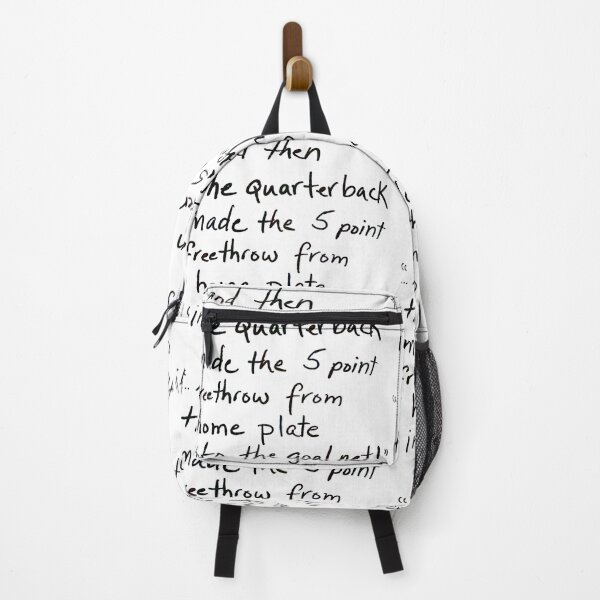 and then
the quarterback
made the 5 point
freethrow from
home plate
and then
the quarterback
made the 5 point
freethrow from
home plate
into the goal net!"
made the 5 point
freethrow from